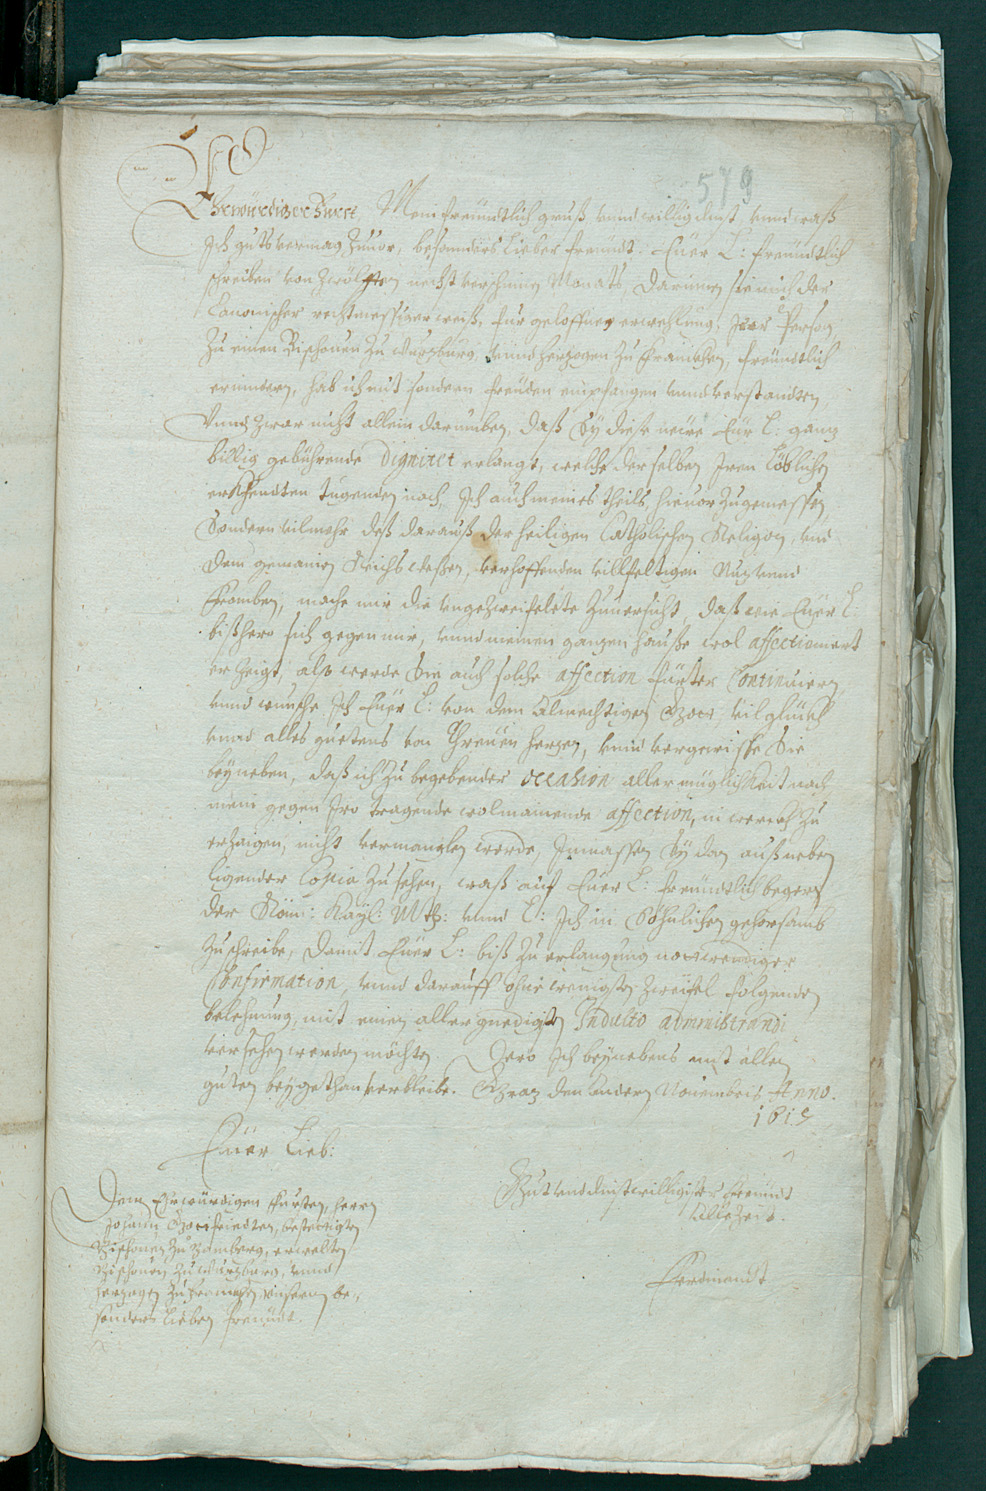 579
Ehrwürdiger Fürst, Mein freündtlich gruß vnnd willig dinst, vnnd waß
Ich guts vermag Zuuor, besonnders Lieber freündt. Euer L: freündtlich
schreiben von Zwölfften nechst verschinen Monats, darinnen sie mich der
Canonischer rechtmessiger weiß, fürgeloffnen erwehlung, Irer Person
Zu einen Bischouen Zu Würzburg, vnnd herzogen Zu Franckhen, freündtlich
erinndern, hab ich mit sondern freüden empfangen vnnd verstandten
Vnnd Zwar nicht allein darumben, daß Sÿ diese neüe Eur L: ganz
billig gebührende Dignitet erlangt, welche derselben Iren Löblichen
erkhendten tugenden nach, Ich auch meines theils, hieuor Zugemessen,
Sondern vilmehr deß darauß der heiligen Catholischen Religion, vnd
dem gemainen Reichs weßen, verhoffenden villfeltigen Nuz vnnd
Fromben, mache mir die vngezweifelete Zuuersicht, daß wie Euer L:
bißhero sich gegen mir, vnnd meinen ganzen hauße wol affectionert
erZeigt, alß werde Sie auch solche affection fürter Continuiern,
vnnd wünsche Ich Euer L: von dem Almechtigen Gott, vil glückh
vnnd alles guetens von Threuen herzen, vnnd vergewisse Sie
beÿneben, daß ich Zu begebender occasion aller müglichkeit nach
mein gegen Iro tragende wolmainende affection, in werckh Zu
erzaigen, nicht vermanglen werde, Inmassen Sÿ dan auß neben
ligender Copia Zusehen, waß auf Euer L: freündtlich begern
der Röm: Kaÿ: Mtt: vnnd L: Ich in Söhnlichen gehorsamb
Zuschreibe, damit Euer L: biß Zu erlangung notwendiger
Confirmation, vnnd darauff ohne wenigsten Zweifel folgenden
belehnung, mit einen allergnedigsten Indulto administrandi
versehen werden möchten. Dero Ich beÿnebens mit allen
guten beÿgethan verbleibe. Graz den andern Nouembris Anno.
1617
Euer Lieb:
Gut vnd dinstwilligister Freündt
Allezeit.
Ferdinandt
Dem Ehrwürdigen Fürsten, herrn
Johann Gottfriedten, bestettigten
Bischouen Zu Bamberg, erwelten
Bischouen Zu Würzburg, vnnd
herzogen Zu Franckhen, vnsern be,
sonders Lieben freündt.